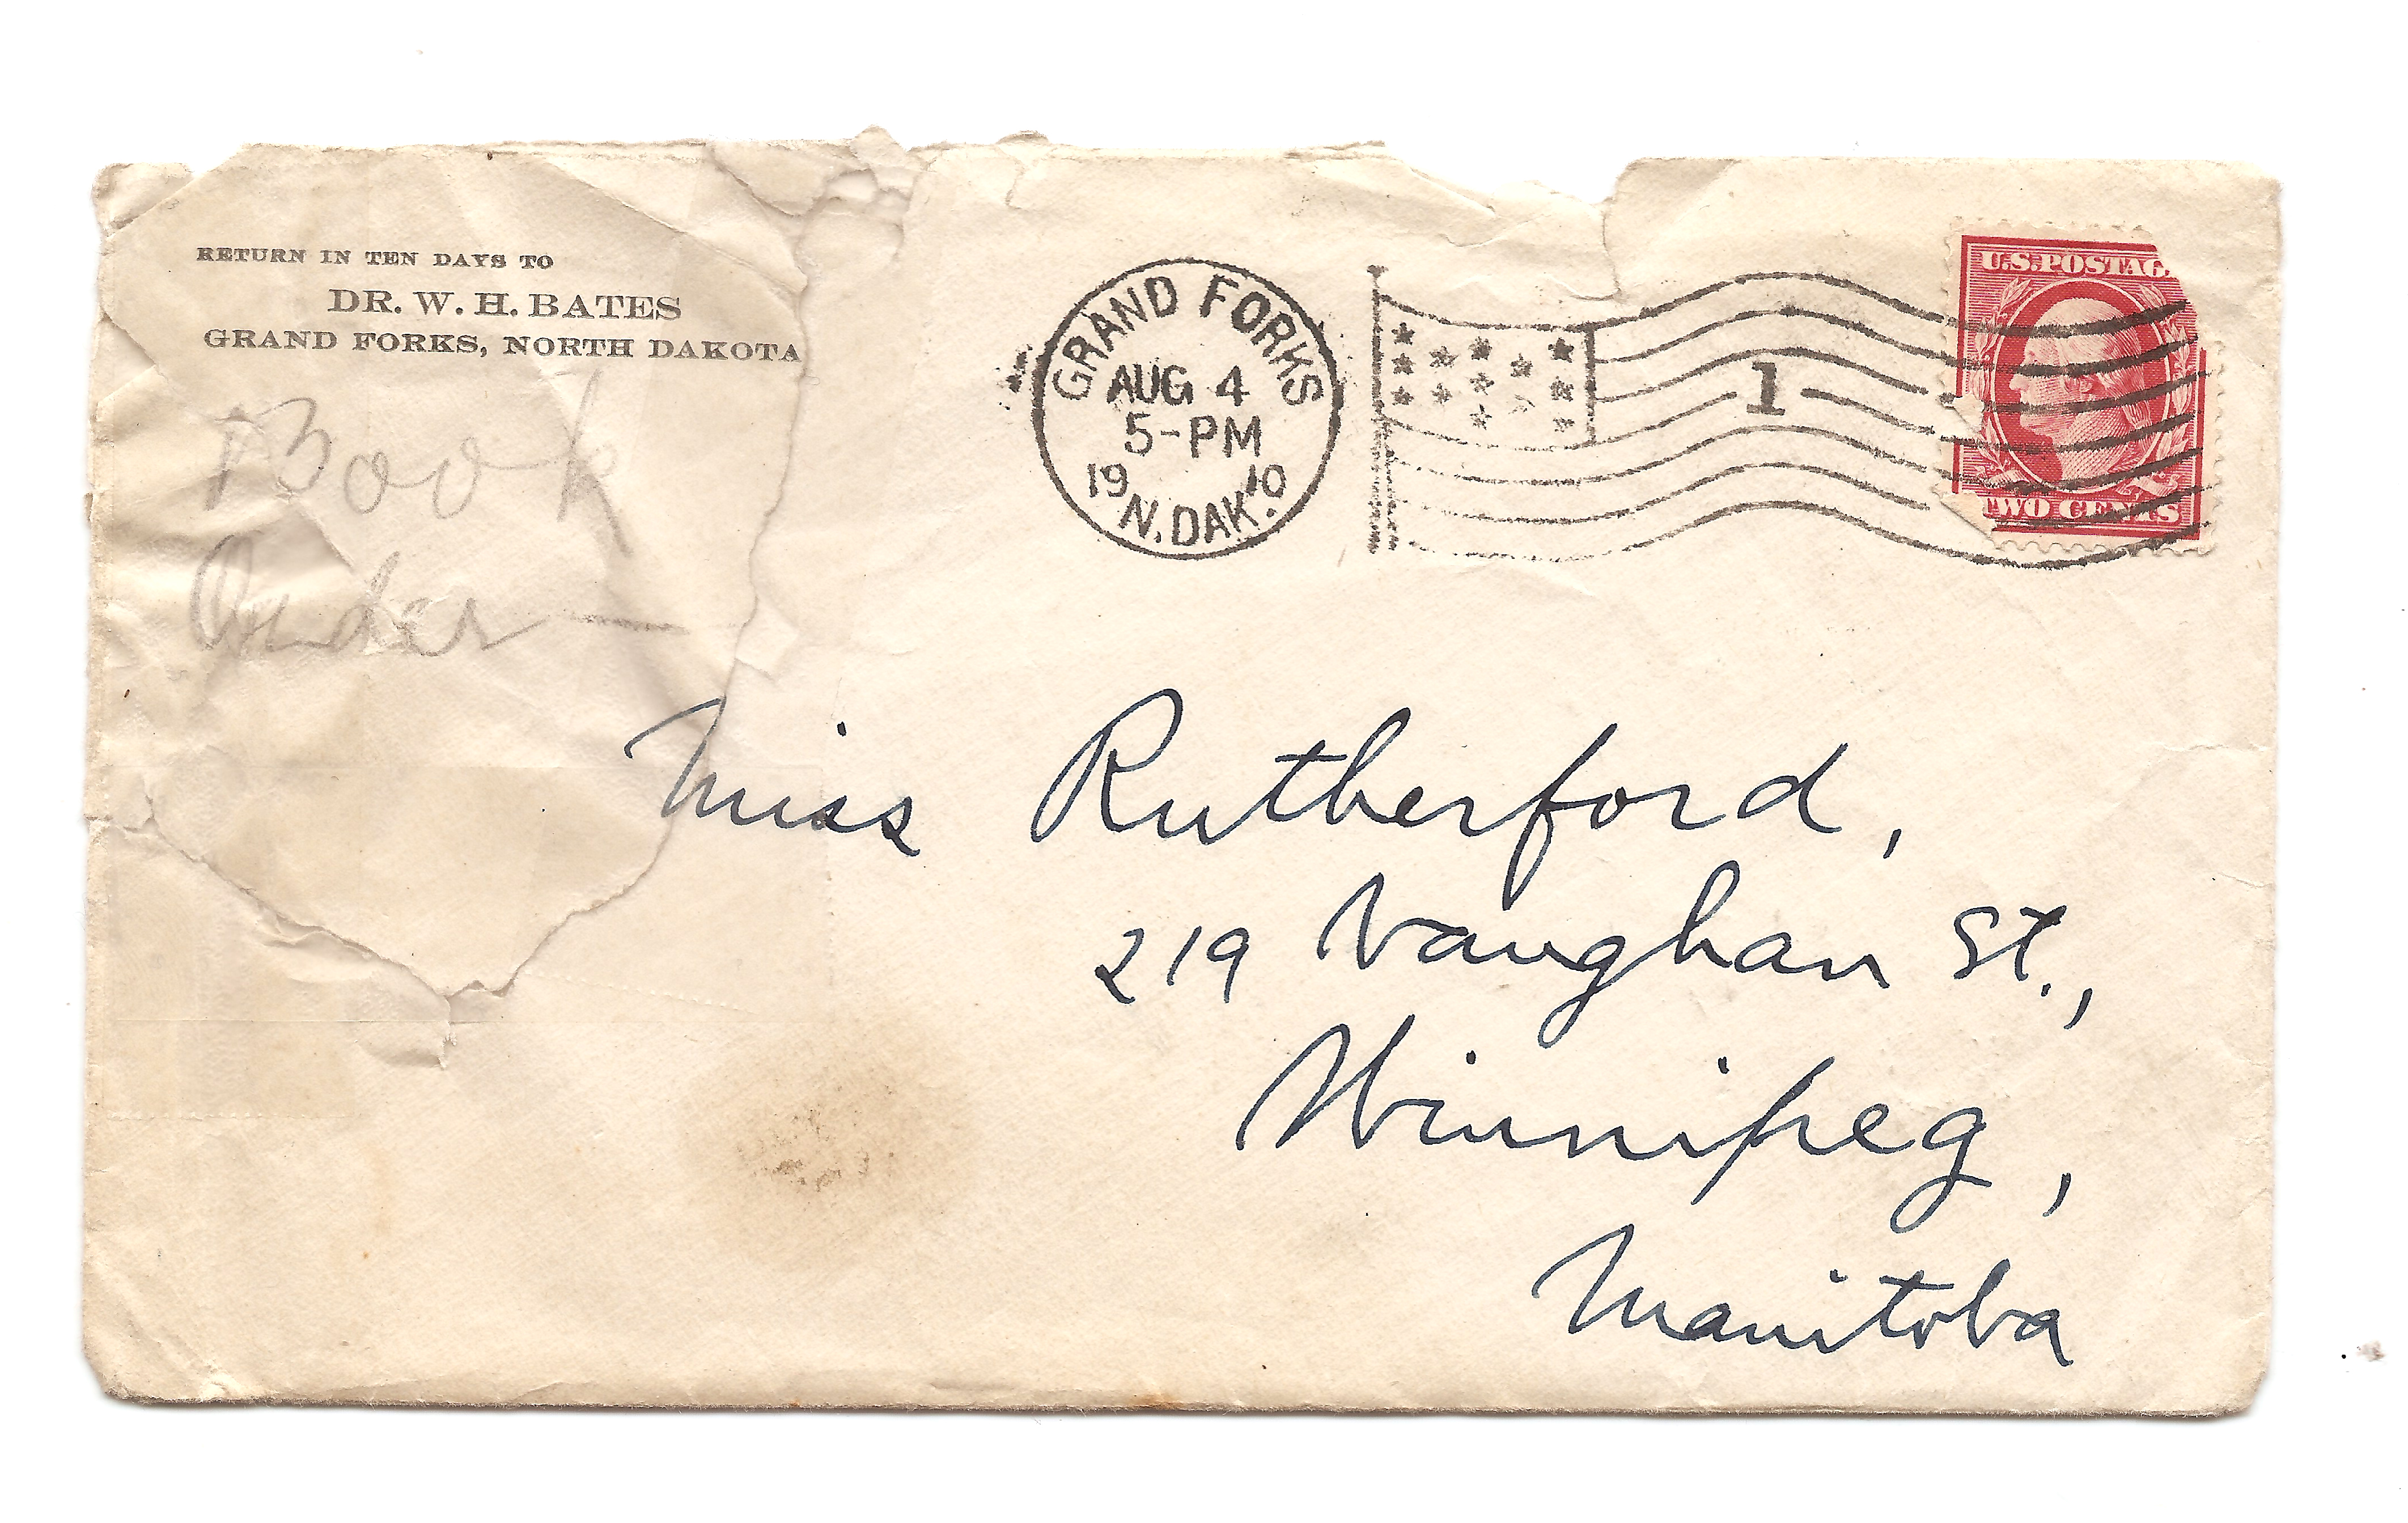 RETURN IN TEN DAYS TO
DR. W. H. BATES
GRAND FORKS, NORTH DAKOTA
Book
Order
GRAND FORKS
AUG 4
5-PM
19 10
N. DAK.
1
U.S. POSTAG
TWO CENTS
Miss Rutherford,
219 Vaughan St.,
Winnipeg,
Manitoba